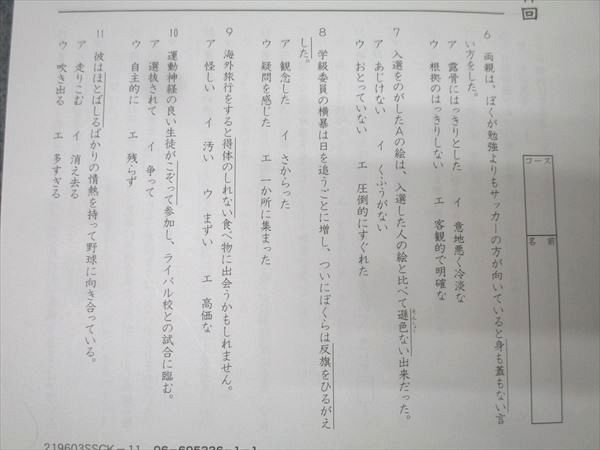 回
コース
名前
6 両親は、ぼくが勉強よりもサッカーの方が向いていると身も蓋もない言
い方をした。
ア 露骨にはっきりとした イ 意地悪く冷淡な
ウ 根拠のはっきりしない エ 客観的で明確な
7 入選をのがしたAの絵は、入選した人の絵と比べて遜色ない出来だった。
そんしょく
ア あじけない イ くふうがない
ウ おとっていない エ 圧倒的にすぐれた
8 学級委員の横暴は日を追うごとに増し、ついにぼくらは反旗をひるがえ
した。
ア 観念した イ さからった
ウ 疑問を感じた エ 一か所に集まった
9 海外旅行をすると得体のしれない食べ物に出会うかもしれません。
ア 怪しい イ 汚い ウ まずい エ 高価な
10 運動神経の良い生徒がこぞって参加し、ライバル校との試合に臨む。
ア 選抜されて イ 争って
ウ 自主的に エ 残らず
11 彼はほとばしるばかりの情熱を持って野球に向き合っている。
ア 走りこむ イ 消え去る
ウ 吹き出る エ 多すぎる